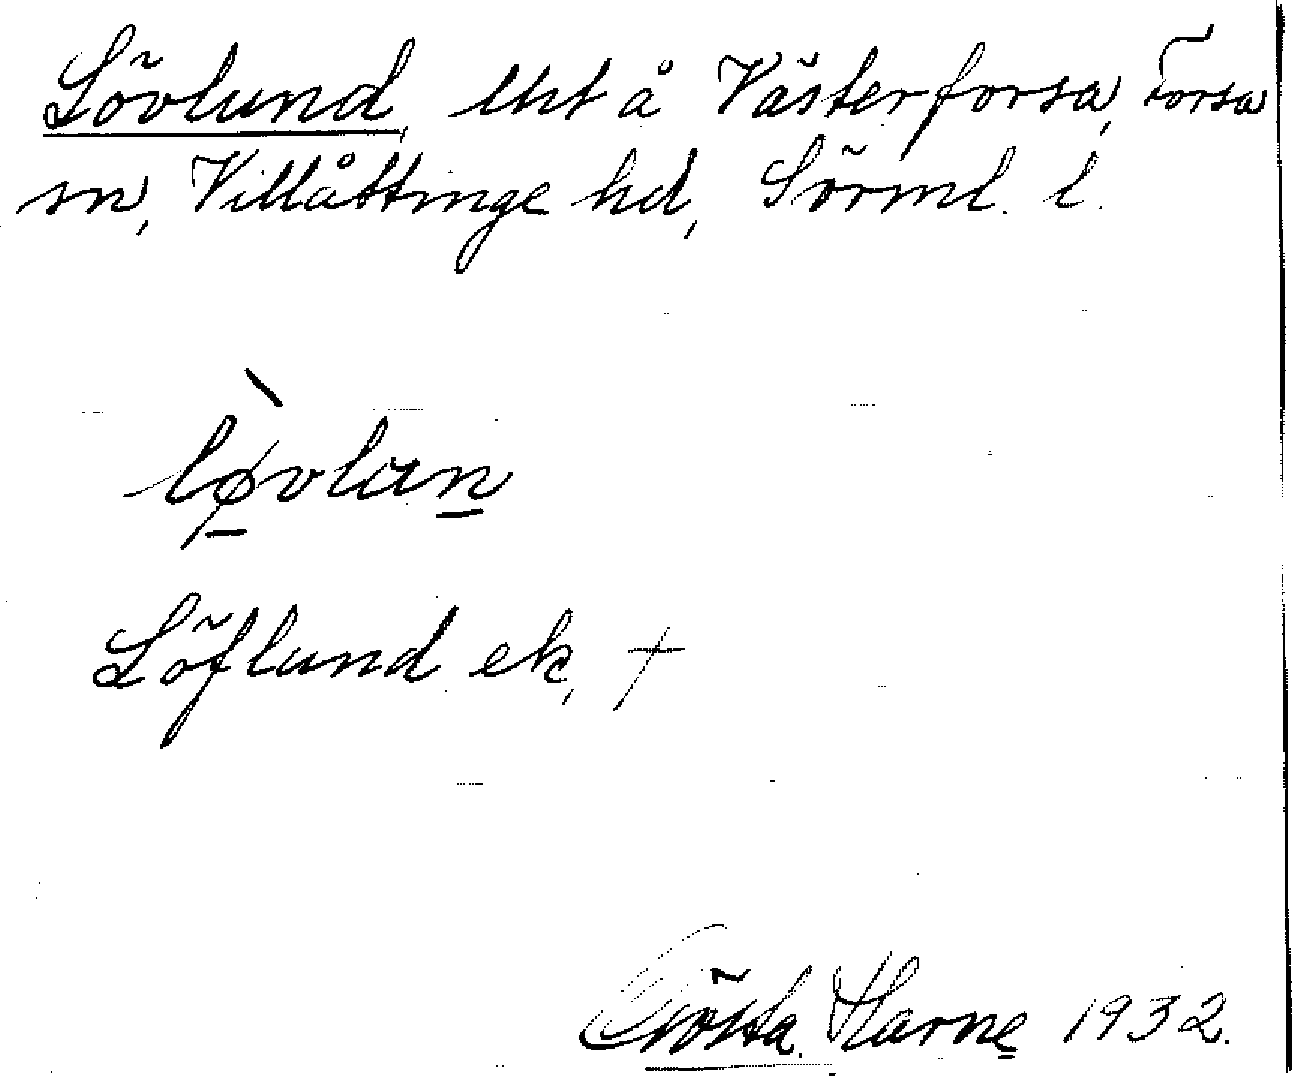 Lövlund, tht å Västerforsa, Forsa
sn, Villåttinge hd, Sörml. l.
lø̀vlan
Löflund ek, †
Gösta Harne 1932.